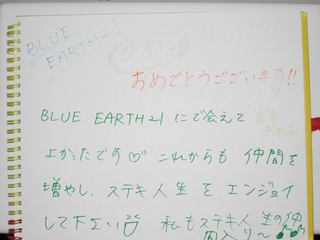 BLUE
EARTH21
10周年
おめでとうございます!!
BLUE EARTH21 にで会えて
よかったです♡ これからも 仲間を
増やし、ステキ人生 を エンジョイ
して下さい 私もステキ人生の仲
間入り〜